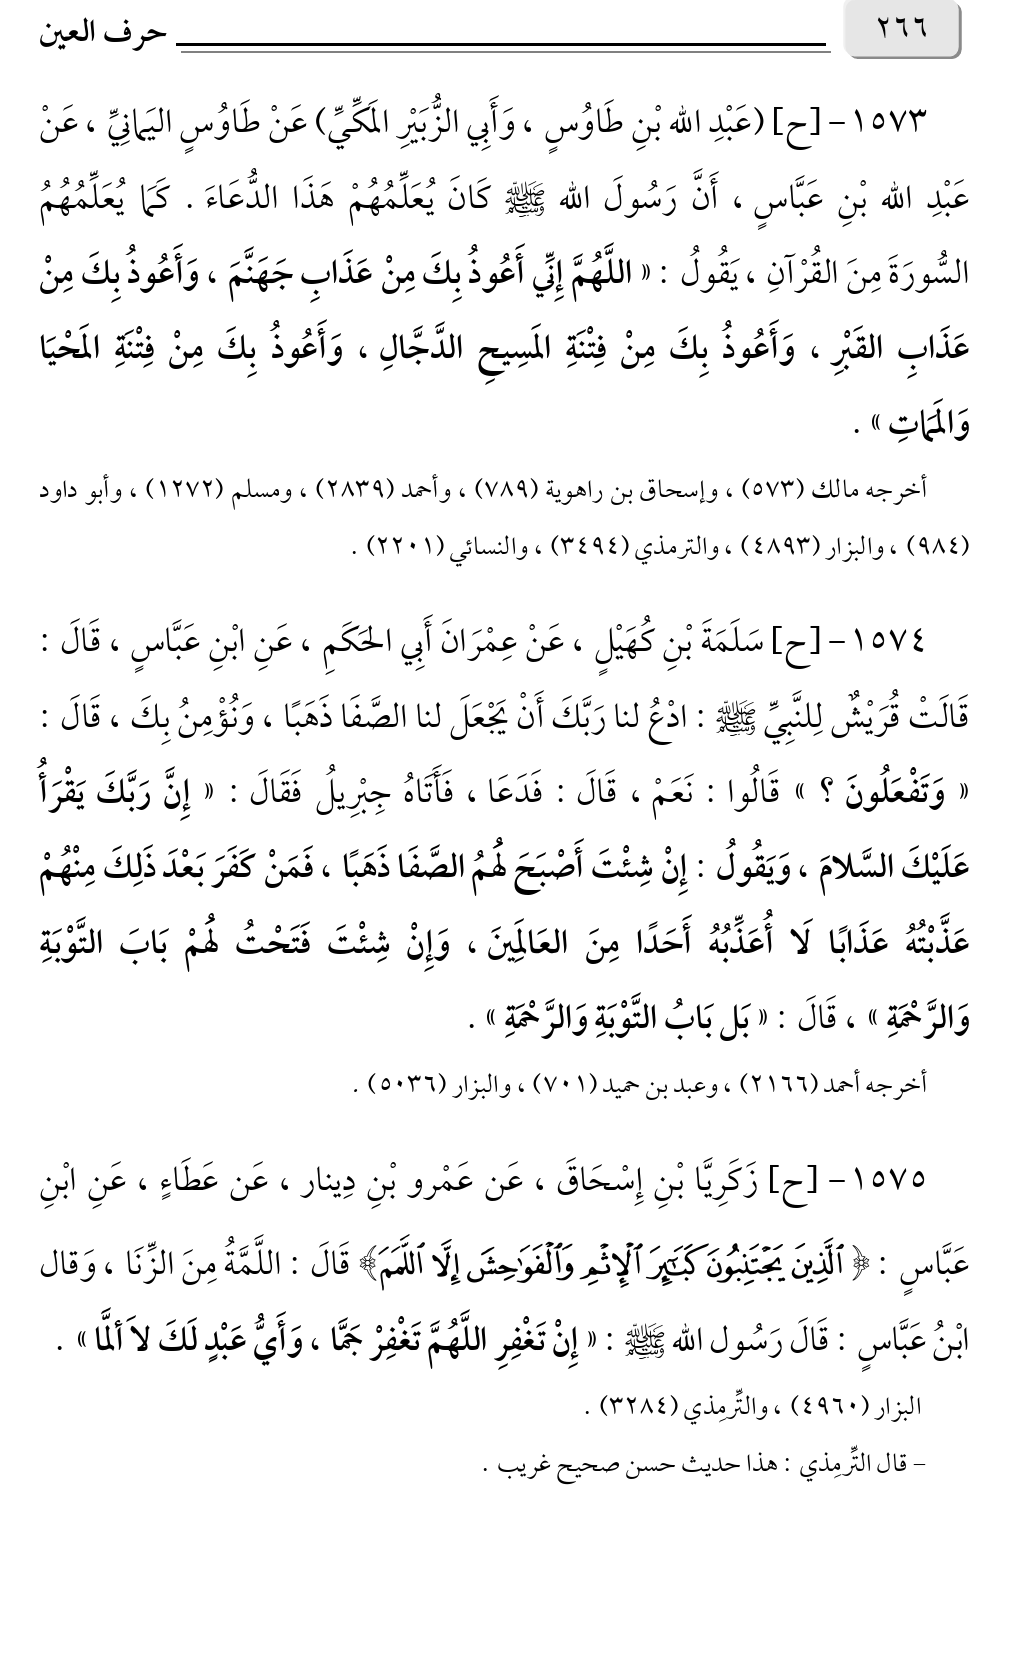 ٢٦٦ حرف العين
١٥٧٣ - [ح] (عَبْدِ الله بْنِ طَاوُسٍ ، وَأَبِي الزُّبَيْرِ المَكِّيِّ) عَنْ طَاوُسٍ اليَمانِيِّ ، عَنْ
عَبْدِ الله بْنِ عَبَّاسٍ ، أَنَّ رَسُولَ الله ﷺ كَانَ يُعَلِّمُهُمْ هَذَا الدُّعَاءَ . كَمَا يُعَلِّمُهُمُ
السُّورَةَ مِنَ القُرْآنِ ، يَقُولُ : « اللَّهُمَّ إِنِّي أَعُوذُ بِكَ مِنْ عَذَابِ جَهَنَّمَ ، وَأَعُوذُ بِكَ مِنْ
عَذَابِ القَبْرِ ، وَأَعُوذُ بِكَ مِنْ فِتْنَةِ المَسِيحِ الدَّجَّالِ ، وَأَعُوذُ بِكَ مِنْ فِتْنَةِ المَحْيَا
وَالمَمَاتِ » .
أخرجه مالك (٥٧٣) ، وإسحاق بن راهوية (٧٨٩) ، وأحمد (٢٨٣٩) ، ومسلم (١٢٧٢) ، وأبو داود
(٩٨٤) ، والبزار (٤٨٩٣) ، والترمذي (٣٤٩٤) ، والنسائي (٢٢٠١) .
١٥٧٤ - [ح] سَلَمَةَ بْنِ كُهَيْلٍ ، عَنْ عِمْرَانَ أَبِي الحَكَمِ ، عَنِ ابْنِ عَبَّاسٍ ، قَالَ :
قَالَتْ قُرَيْشٌ لِلنَّبِيِّ ﷺ : ادْعُ لنا رَبَّكَ أَنْ يَجْعَلَ لنا الصَّفَا ذَهَبًا ، وَنُؤْمِنُ بِكَ ، قَالَ :
« وَتَفْعَلُونَ ؟ » قَالُوا : نَعَمْ ، قَالَ : فَدَعَا ، فَأَتَاهُ جِبْرِيلُ فَقَالَ : « إِنَّ رَبَّكَ يَقْرَأُ
عَلَيْكَ السَّلامَ ، وَيَقُولُ : إِنْ شِئْتَ أَصْبَحَ لَهُمُ الصَّفَا ذَهَبًا ، فَمَنْ كَفَرَ بَعْدَ ذَلِكَ مِنْهُمْ
عَذَّبْتُهُ عَذَابًا لَا أُعَذِّبُهُ أَحَدًا مِنَ العَالَمِينَ ، وَإِنْ شِئْتَ فَتَحْتُ لَهُمْ بَابَ التَّوْبَةِ
وَالرَّحْمَةِ » ، قَالَ : « بَل بَابُ التَّوْبَةِ وَالرَّحْمَةِ » .
أخرجه أحمد (٢١٦٦) ، وعبد بن حميد (٧٠١) ، والبزار (٥٠٣٦) .
١٥٧٥ - [ح] زَكَرِيَّا بْنِ إِسْحَاقَ ، عَن عَمْرو بْنِ دِينار ، عَن عَطَاءٍ ، عَنِ ابْنِ
عَبَّاسٍ : ﴿ ٱلَّذِينَ يَجْتَنِبُونَ كَبَـٰٓئِرَ ٱلْإِثْمِ وَٱلْفَوَٰحِشَ إِلَّا ٱللَّمَمَ﴾ قَالَ : اللَّمَّةُ مِنَ الزِّنَا ، وَقال
ابْنُ عَبَّاسٍ : قَالَ رَسُول الله ﷺ : « إِنْ تَغْفِرِ اللَّهُمَّ تَغْفِرْ جَمَّا ، وَأَيُّ عَبْدٍ لَكَ لاَ ألمَّا » .
البزار (٤٩٦٠) ، والتِّرمِذي (٣٢٨٤) .
- قال التِّرمِذي : هذا حديث حسن صحيح غريب .